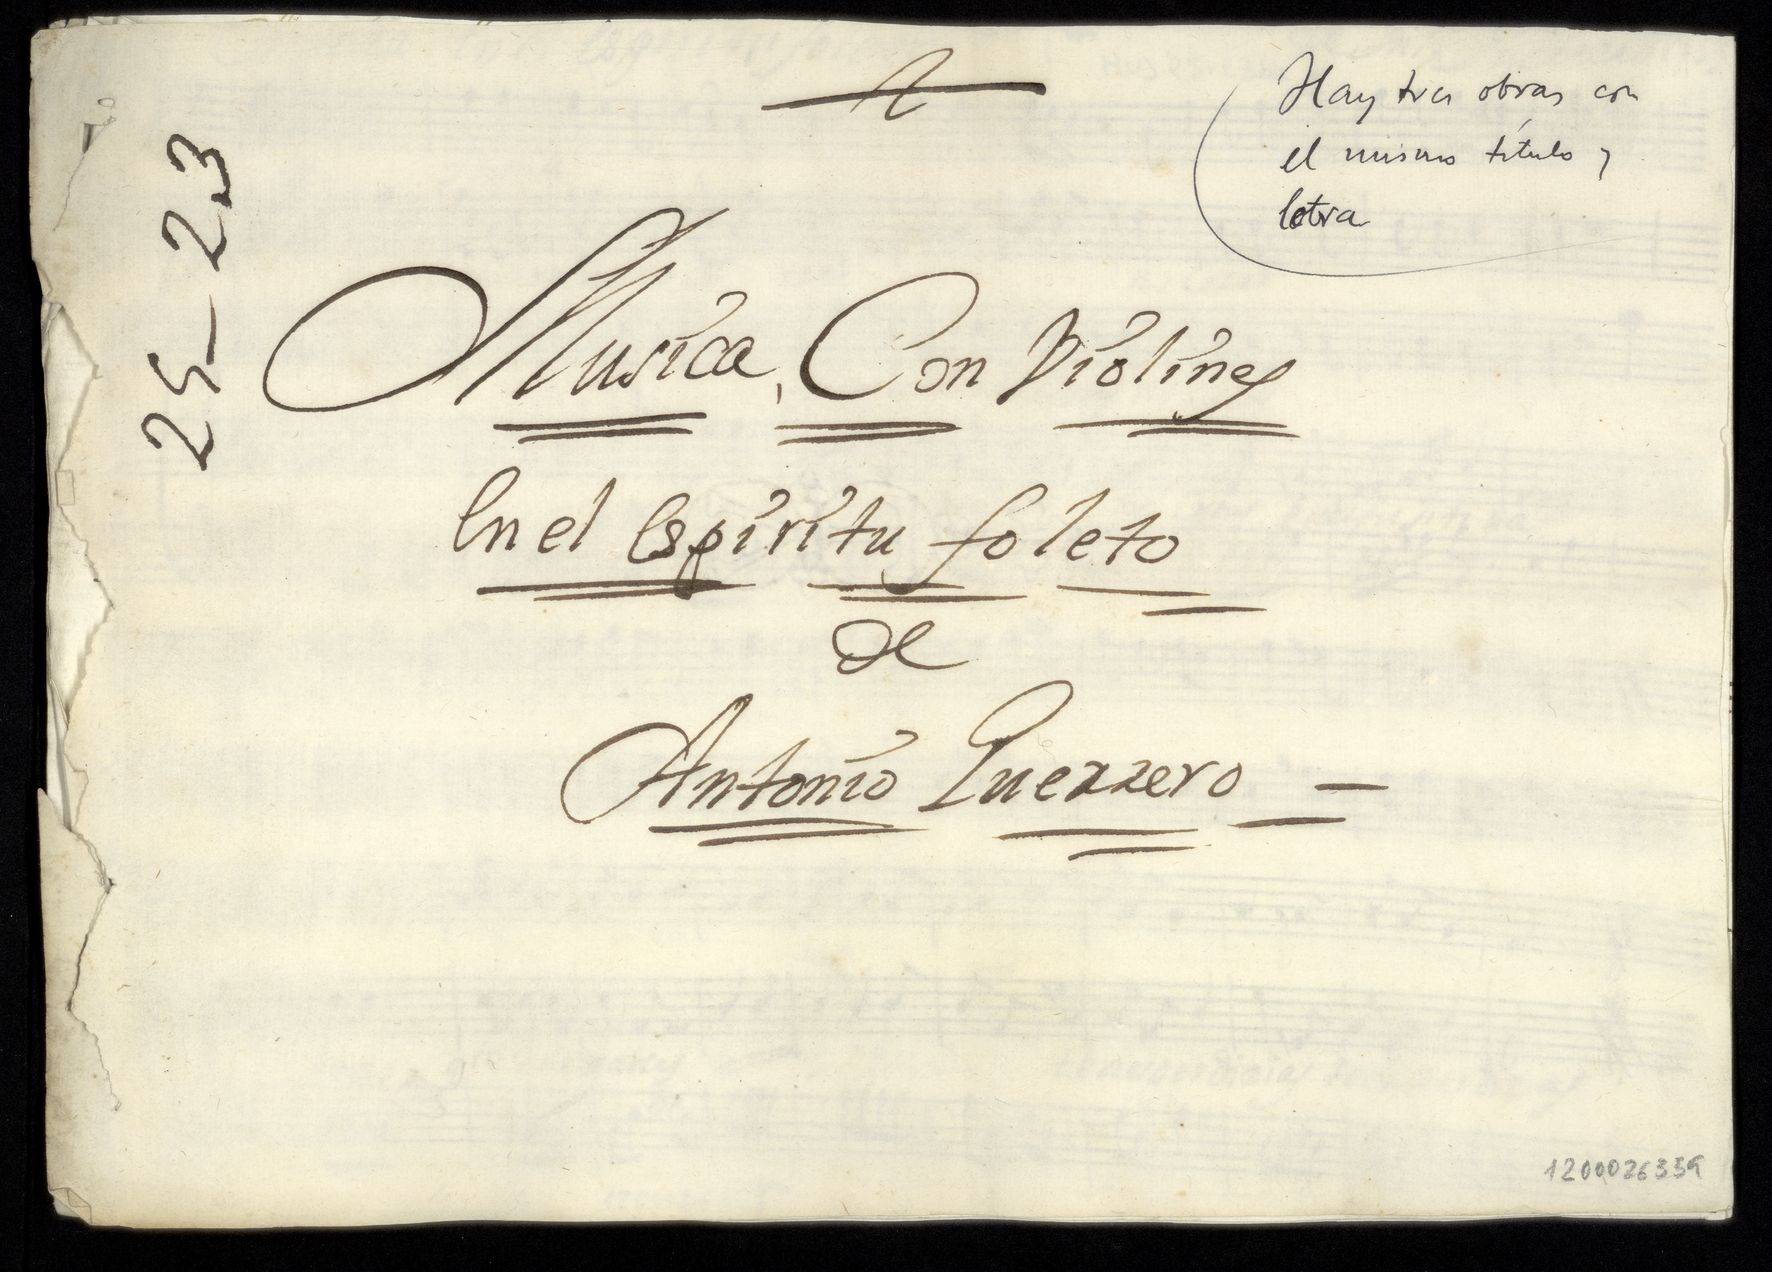 Hay tres obras con
el mismo título y
letra
25-23
Musica, Con Violines
En el Espiritu foleto
de
Antonio Guerrero
1200026339